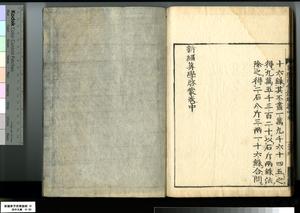 十六銖其不盡一萬九千六十四五之
得九萬五千三百二十以石斤兩銖法
除之得二石八斤三兩一十六銖合問
新編算學啓蒙卷中
Kodak